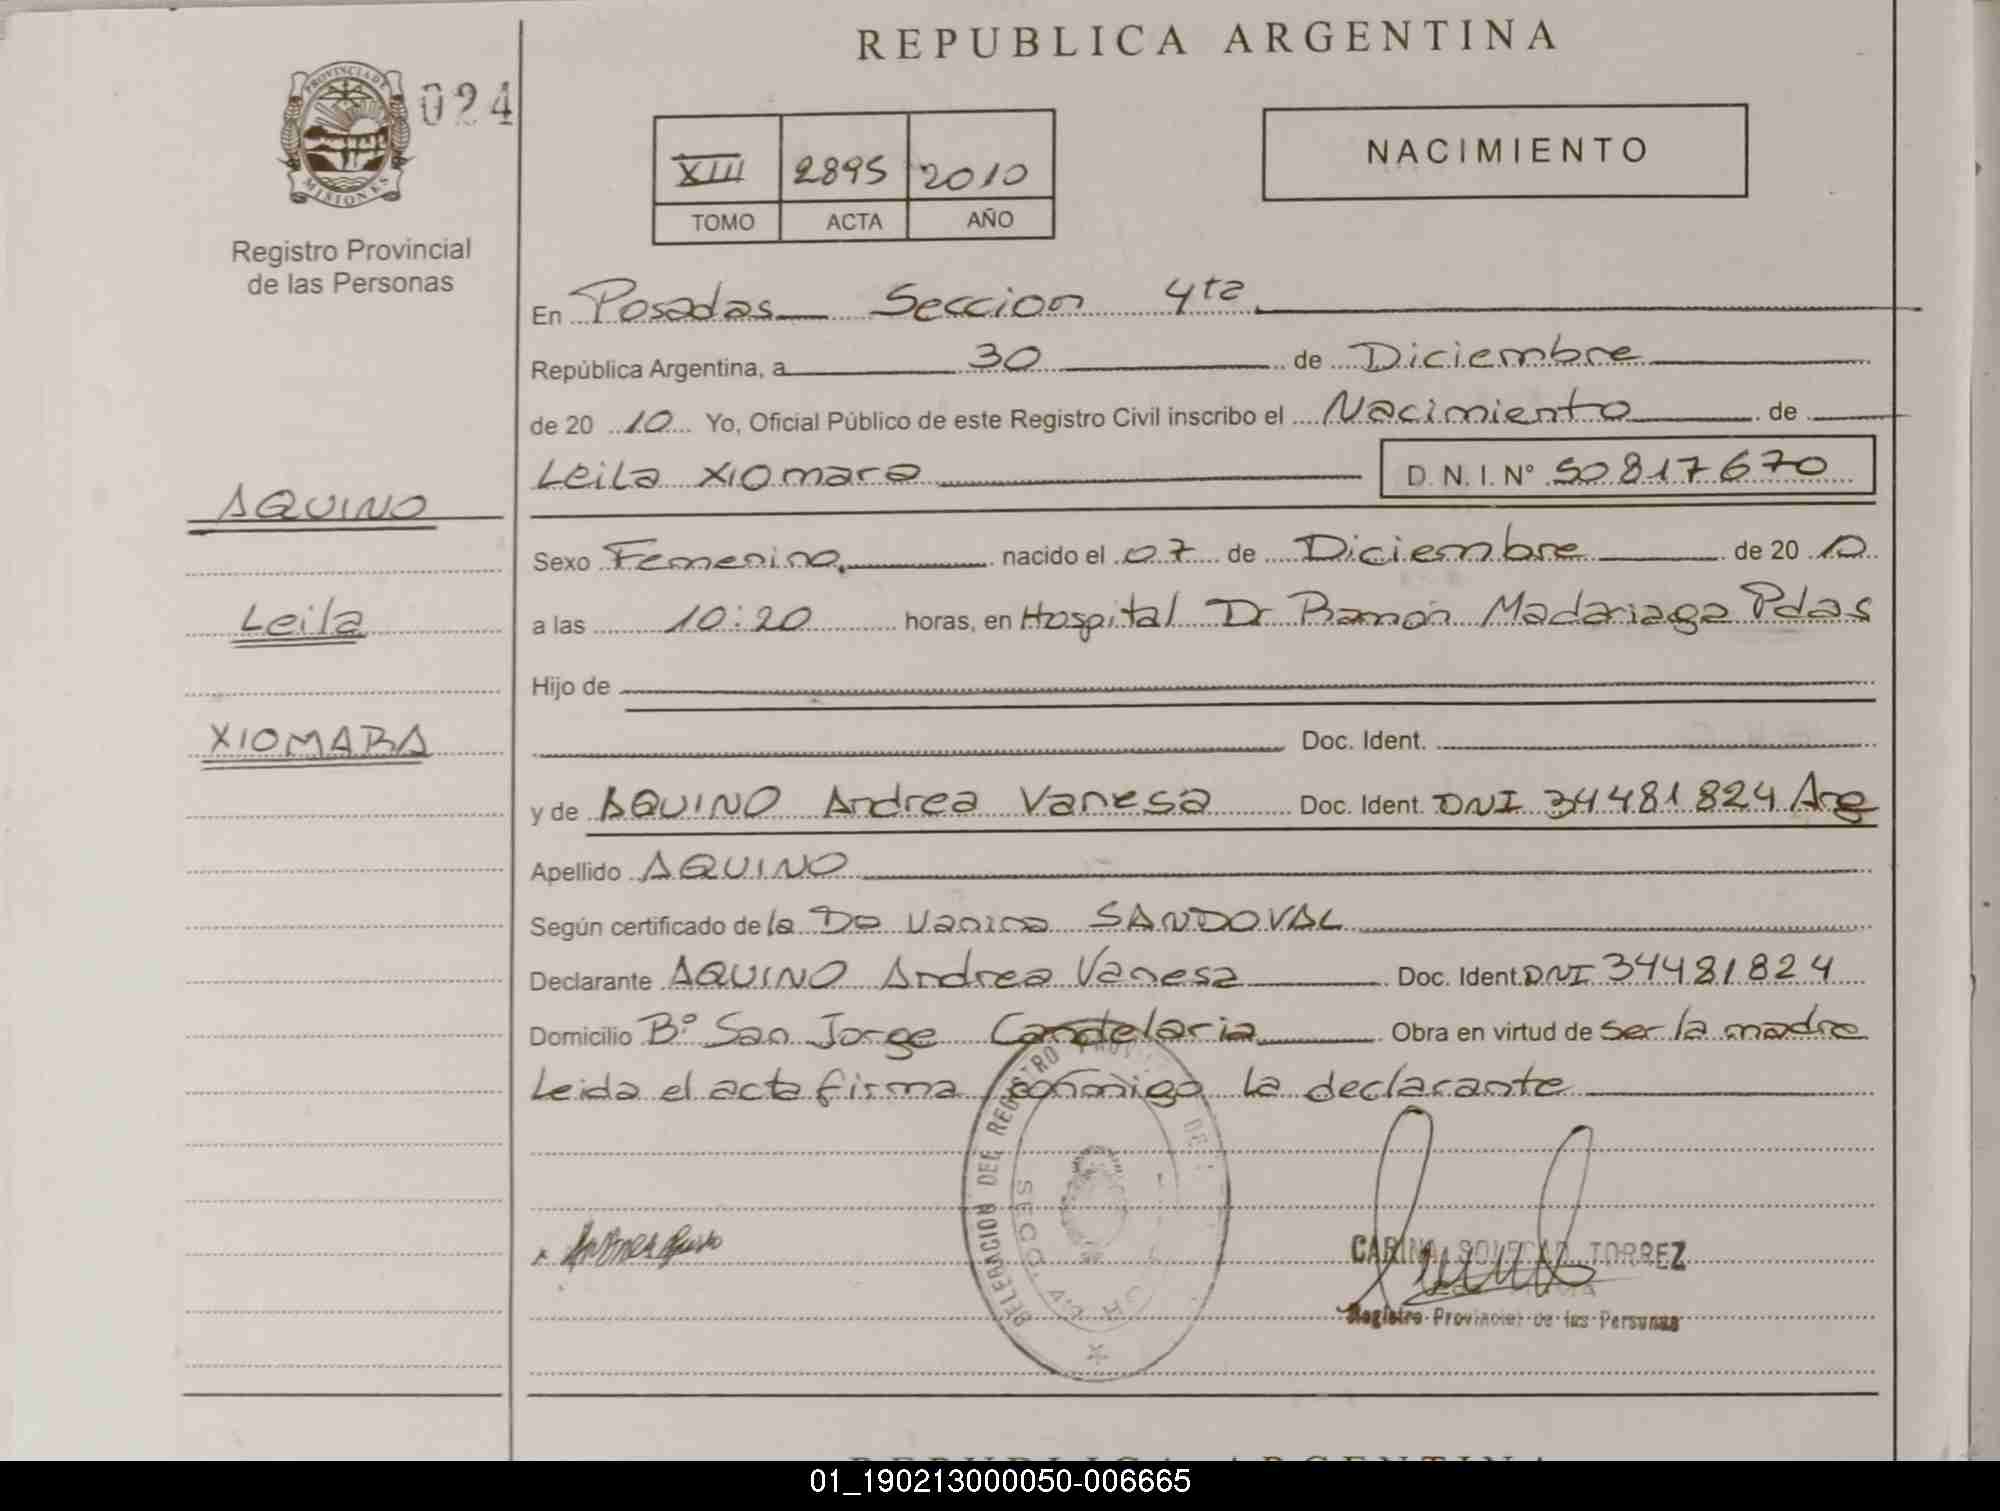 REPUBLICA ARGENTINA
PROVINCIA DE
MISIONES
024
Registro Provincial
de las Personas
XIII 2895 2010
TOMO ACTA AÑO
NACIMIENTO
En Posadas Seccion 4ta
República Argentina, a 30 de Diciembre
de 20 10 Yo, Oficial Público de este Registro Civil inscribo el Nacimiento de
Leila XIOmara D. N. I. Nº 50817670
AQUINO
Leila
XIOMARA
Sexo Femenino nacido el 07 de Diciembre de 20 10
a las 10:20 horas, en Hospital Dr Ramón Madariaga Pdas
Hijo de
Doc. Ident.
y de AQUINO Andrea Vanesa Doc. Ident. DNI 34481824 Arg
Apellido AQUINO
Según certificado de la Da Vanina SANDOVAL
Declarante AQUINO Andrea Vanesa Doc. Ident. DNI 34481824
Domicilio Bº San Jorge Candelaria Obra en virtud de ser la madre
Leida el acta firma conmigo la declarante
DELEGACION DEL REGISTRO PROV. DE
SECC.
CARINA SOLEDAD TORREZ
Registro Provincial de las Personas
REPUBLICA ARGENTINA
01_190213000050-006665